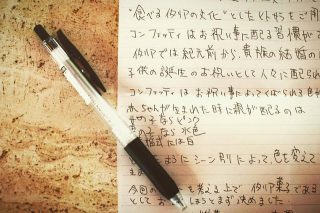 "食べるイタリアの文化"としたヒトやらをご用
コンフェッティはお祝い事に配る習慣がで
イタリアでは紀元前から、貴族の結婚の
子供の誕生のお祝いとして人々に配られ
コンフェッティはお祝い事によってくばられる色が
赤ちゃんが生まれた時に親が配るのは
女の子ならピンク
男の子なら水色
結婚式では白
このようにシーン別によって、色を変えて
ます
今回の を考える上で イタリア菓子である
としてお しようとまず決めました。